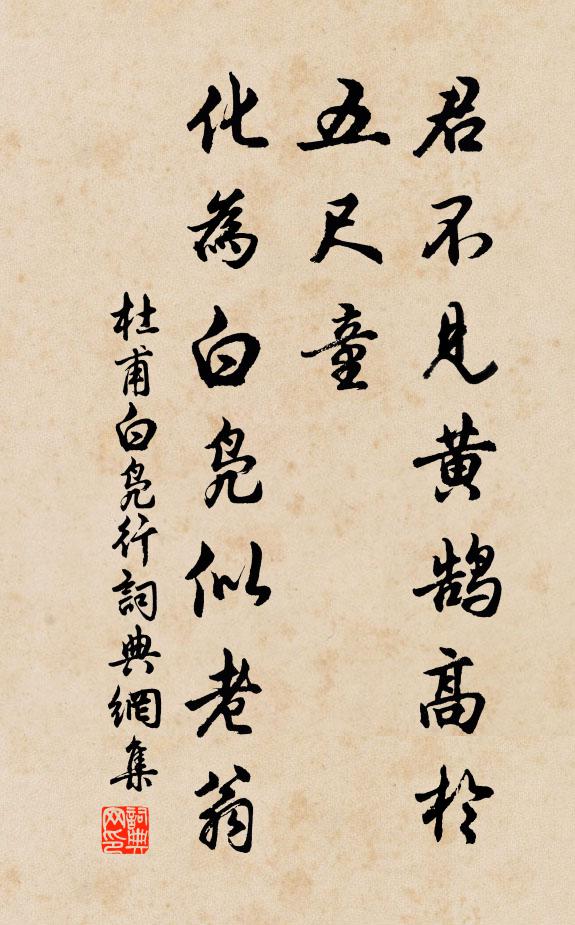 君不見黃鵠高於
五尺童
化為白鳧似老翁
杜甫白鳧行詞典網集
詞典网印